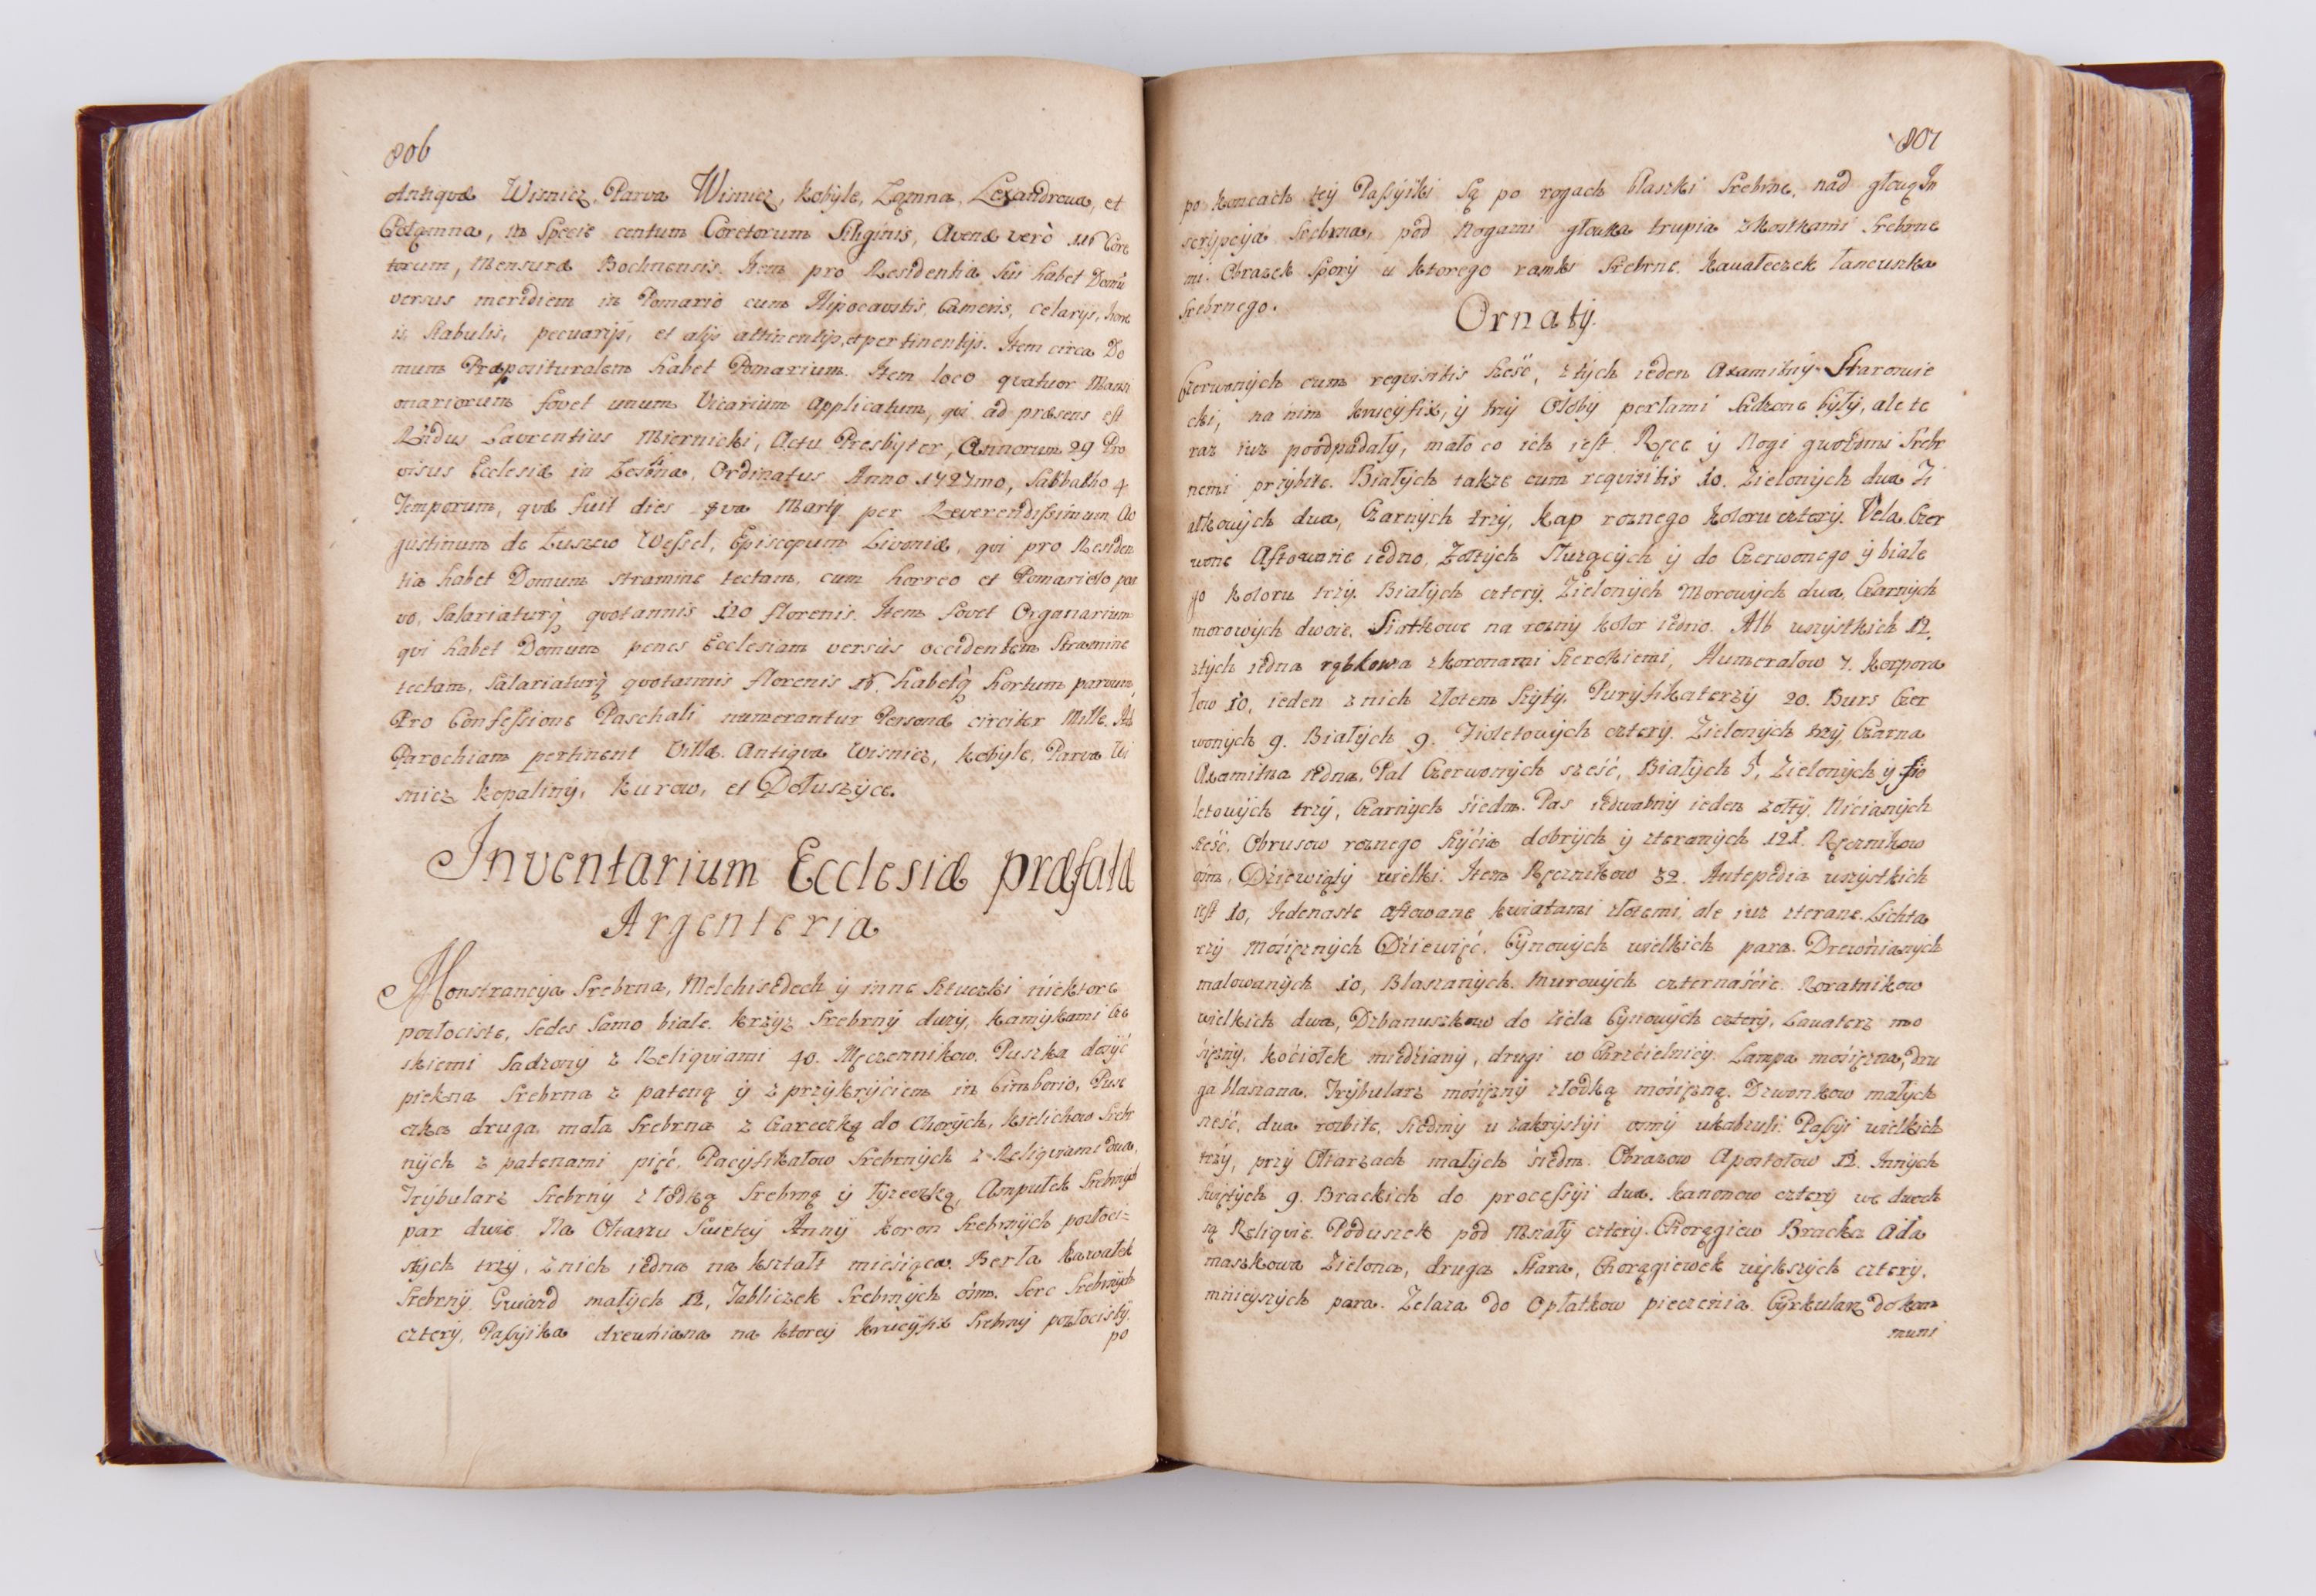 806
Antiquæ Wisnicz, Parva Wisnicz, Kobyle, Łąmna, Lexandrowa, et
Połąmna, in Specie centum Coretorum Siliginis, Avenæ verò 116 Core
torum, Mensuræ Bochnensis. Item pro Residentia sui habet Domũ
versus meridiem in Pomario cum Hipocaustis, Cameris, celarijs, horre
is, stabulis, pecuarijs, et alijs attinentijs, et pertinentijs. Item circa Do
mum Præposituralem habet Pomarium. Item loco quatuor Mansi
onariorum fovet unum Vicarium Applicatum, qui ad præsens est
Rñdus Laurentius Miernicki, Actu Presbyter, Annorum 29 Pro
visus Ecclesiæ in Ordinatus Anno 1727mo, Sabbatho 4
Temporum, quæ fuit dies Martij per Reverendissimum Au
gustinum de Łuszew Wessel, Episcopum Livoniæ, qui pro Residen
tia habet Domum stramine tectam, cum horreo et Pomariolo par
vo, Salariaturq̃ quotannis 120 florenis. Item fovet Organarium
qui habet Domum penes Ecclesiam versùs occidentem Stramine
tectam, Salariaturq̃ quotannis florenis 16. habetq̃ hortum parvum,
Pro Confessione Paschali numerantur Personæ circiter Mille. Ad
Parochiam pertinent Villæ. Antiqua Wisnicz, Kobyle, Parva Wi
snicz Kopaliny, Kurow, et Dołuszyce.
Inventarium Ecclesiæ præfatæ
Argenteria
Monstrancya Srebrna, Melchisedech ÿ inne Sztuczki niektore
pozłociste, Sedes Samo białe. Krzyż Srebrnÿ duży, kamykami Cze
skiemi Sadzony z Reliquiami 40. Męczennikow. Puszka dosyć
piekna Srebrna z pateną ÿ z przykryciem in Cimborio, Pusz
czka druga mała Srebrna z Gareczką do Chorych, Kielichow Srebr
nych z patenami pięć. Pacyfikałow Srebrnÿch z Reliquiami dwa,
Trybularz Srebrny z łodką Srebrną ÿ łyżeczką, Ampułek Srebrnych
par dwie. Na Ołtarzu Swietey Annÿ Koron Srebrnych pozłoci=
stÿch trzy, z nich iedna na kształt miesiąca. Berła kawałek
Srebrny. Gwiazd małych 12, Tabliczek Srebrnych ośm. Serc Srebrnÿch
cztery, Passyika drewniana na ktorey Krucyfix Srebrny pozłocisty.
po
807
po koncach tey Passyiki są po rogach blaszki Srebrne, nad głową In
skrypcya Srebrna, pod Nogami głowka trupia z kostkami Srebrne
mi. Obrazek spory u ktorego ramki Srebrne. Kawałeczek łancuszka
Srebrnego.
Ornaty.
Czerwonych cum requisitis sześć, z tych ieden Axamitny Starowie
cki, na nim Krucyfix, ÿ trzy Osoby perłami Sadzone były, ale te
raz iuz poodpadały, mało co ich iest. Ręce y Nogi gwozdzmi Srebr
nemi przybite. Białych takze cum requisitis 10. Zielonych dwa Fi
ałkowych dwa, Czarnych trzy, Kap roznego koloru cztery. Vela Czer
wone Aftowane iedno, Zołtych słuzących y do Czerwonego y białe
go koloru trzy. Białych cztery, Zielonych Morowych dwa, Czarnych
morowych dwoie, Siatkowe na rozny kolor iedno. Alb wszystkich 12.
z tych iedna rąbkowa z koronami szerokiemi, Humerałow 7. Korpora
łow 10, ieden z nich złotem szyty. Puryfikaterzy 20. Burs Czer
wonych 9. Białych 9. Fioletowych cztery. Zielonych trzy, Czarna
Axamitna iedna, Pal Czerwonych sześć, Białych 5, Zielonych y fio
letowych trzy, Czarnych siedm. Pas iedwabny ieden zołty, Nicianych
sześć. Obrusow roznego szycia dobrych y zteranych 121. Ręcznikow
ośm, Dziewiąty wielki. Item Ręcznikow 32. Antepedia wszystkich
iest 10, Iedenaste aftowane kwiatami złotemi, ale iuz zterane. Lichta
rzy Mosiężnych Dziewięć. Cynowych wielkich para. Drewnianych
malowanych 10, Blaszanych murowych czternaście. Roratnikow
wielkich dwa, Dzbanuszkow do ziela Cynowych cztery, Lavaterz mo
siężny, kociołek miedziany, drugi w Chrzcielnicy. Lampa mosiężna, dru
ga blaszana. Trybularz mosiężny z łodką mosiężną. Dzwonkow małych
sześć, dwa rozbite, siodmy u zakrystyi osmy u kabzuli. Passyi wielkich
trzy, przy Ołtarzach małych siedm. Obrazow Apostołow 12. Innych
świętych 9. Brackich do processyi dwa. Kanonow cztery we dwoch
są Reliquie. Poduszek pod Mszały cztery. Chorągiew Bracka Ada
maszkowa Zielona, druga Stara, Chorągiewek większych cztery,
mnieyszych para. Zelaza do Opłatkow pieczenia. Cyrkularz do kom
muni